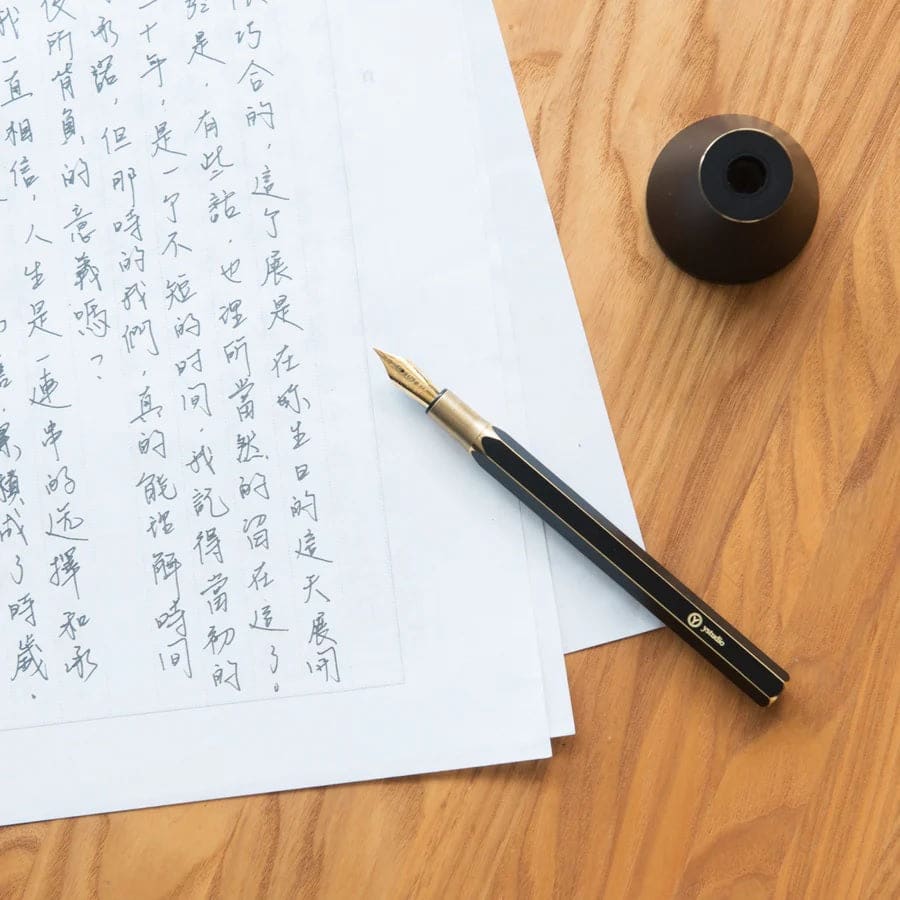 巧合的,這个展是在妳生日的這天展開
是,有些話,也理所當然的留在這了。
二十年,是一个不短的时间,我記得當初的
承諾,但那時的我們,真的能理解時间
所背負的意義嗎?
我一直相信,人生是一連串的选擇和承
累積成了時歲.
ystudio